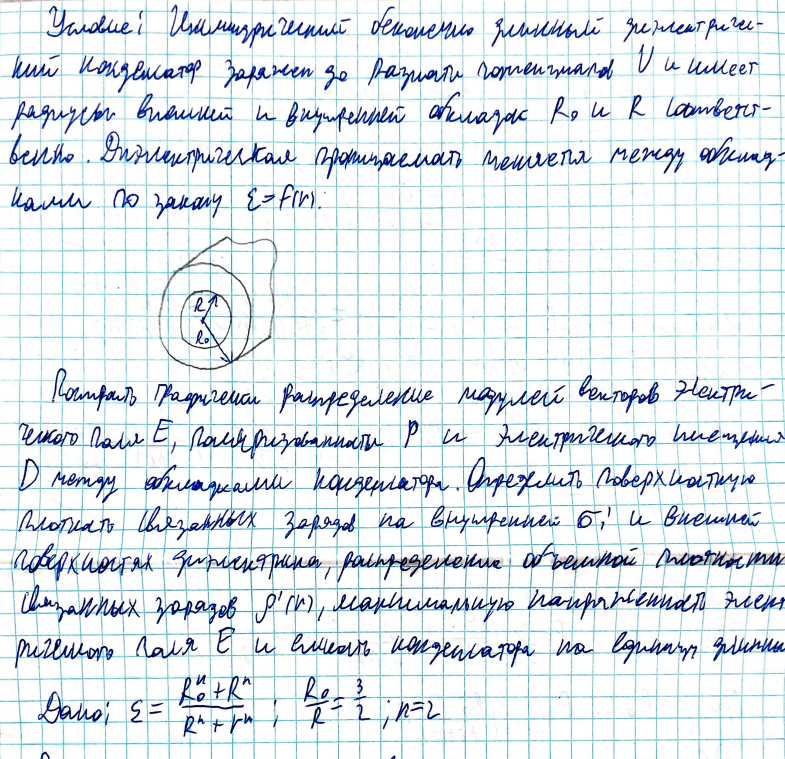 Условие: Цилиндрический бесконечно длинный диэлектричес-
кий конденсатор заряжен до разности потенциалов U и имеет
радиусы внешней и внутренней обкладок R₀ и R соответст-
венно. Диэлектрическая проницаемость меняется между обклад-
ками по закону ε=f(r).
R
R₀
Построить графически распределение модулей векторов электри-
ческого поля E, поляризованности P и электрического смещения
D между обкладками конденсатора. Определить поверхностную
плотность связанных зарядов на внутренней σ₁' и внешней
поверхностях диэлектрика, распределение объемной плотности
связанных зарядов ρ'(r), максимальную напряженность элект
рического поля E и емкость конденсатора на единицу длины
Дано: ε = (R₀ⁿ + Rⁿ)/(Rⁿ + rⁿ) ; R₀/R = 3/2 ; n=2